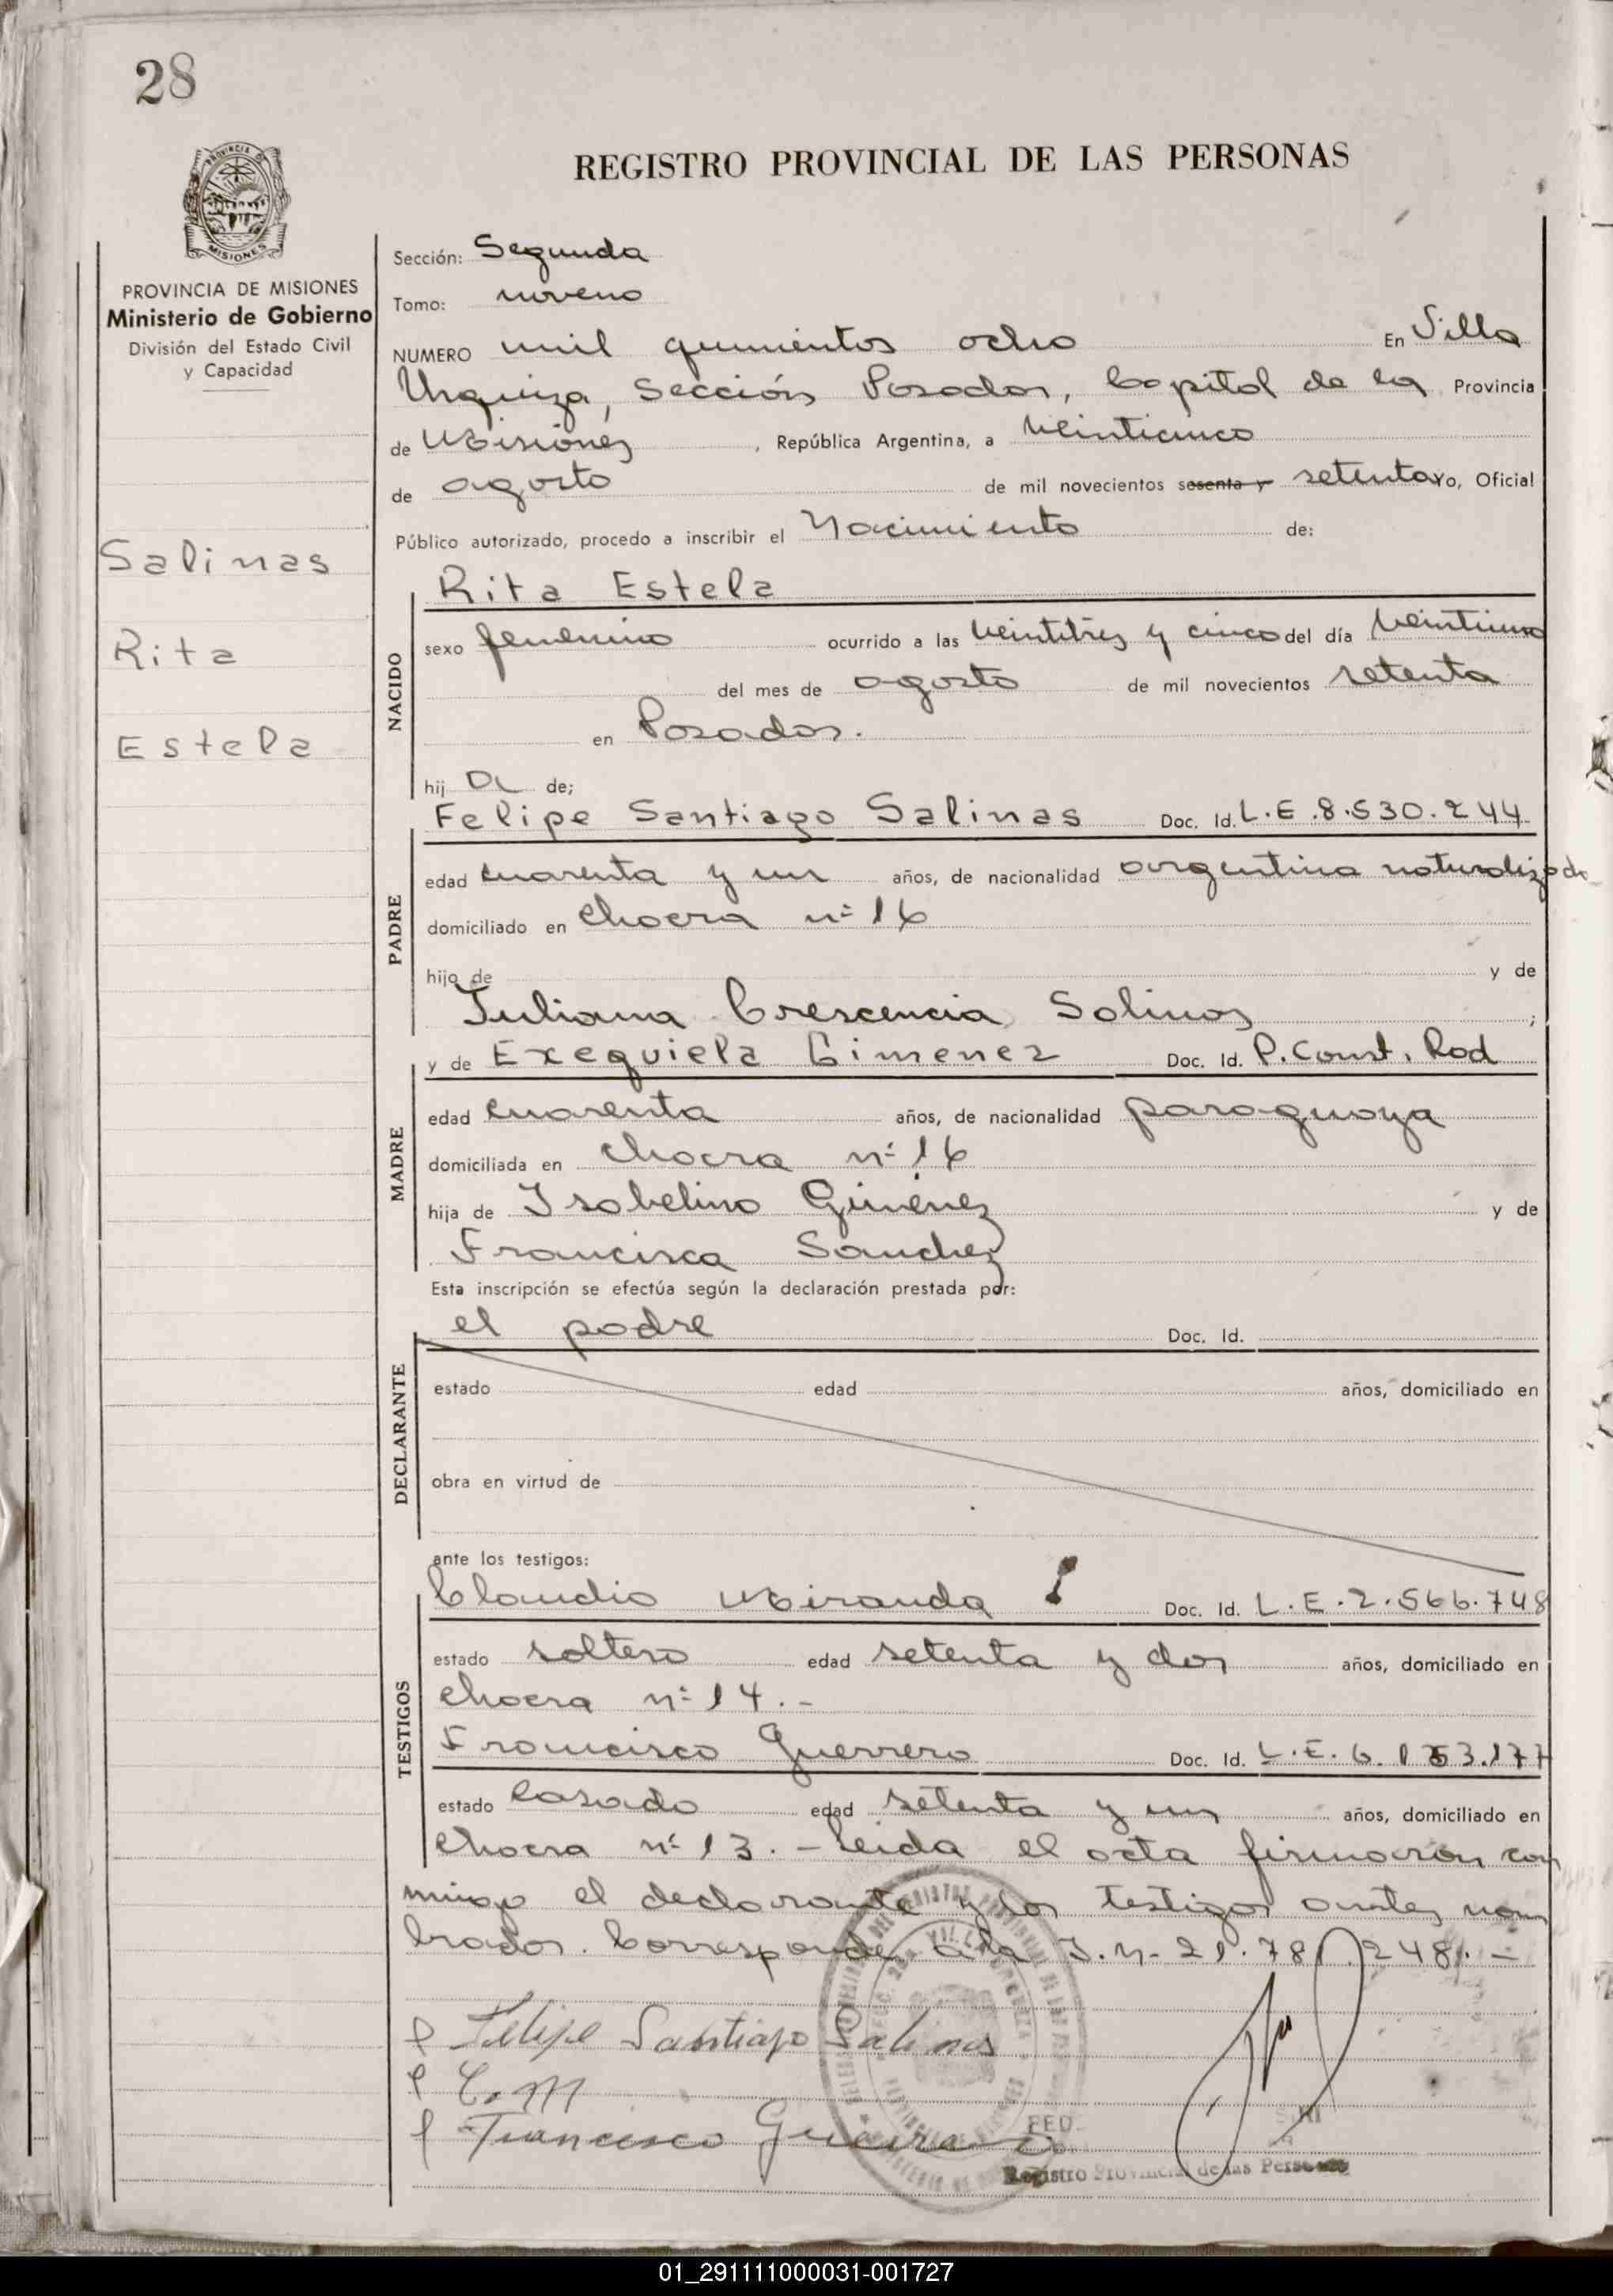 28
REGISTRO PROVINCIAL DE LAS PERSONAS
PROVINCIA DE
MISIONES
PROVINCIA DE MISIONES
Ministerio de Gobierno
División del Estado Civil
y Capacidad
Salinas
Rita
Estela
Sección: Segunda
Tomo: noveno
NUMERO mil quinientos ocho En Villa
Urquiza, Sección Posadas, Capital de la Provincia
de Misiones, República Argentina, a veinticinco
de agosto de mil novecientos sesenta y setenta Yo, Oficial
Público autorizado, procedo a inscribir el Nacimiento de:
NACIDO
Rita Estela
sexo femenino ocurrido a las veintitres y cinco del día
del mes de agosto de mil novecientos setenta
en Posadas.
hij a de;
PADRE
Felipe Santiago Salinas Doc. Id. L.E.8.530.244
edad cuarenta y un años, de nacionalidad argentina naturalizado
domiciliado en chacra nº 16
hijo de y de
Juliana Crescencia Salinas ;
MADRE
y de Exequiela Gimenez Doc. Id. P. Const. Rod
edad cuarenta años, de nacionalidad paraguaya
domiciliada en chacra nº 16
hija de Isabelino Giménez y de
Francisca Sanchez
Esta inscripción se efectúa según la declaración prestada por:
DECLARANTE
el padre Doc. Id.
estado edad años, domiciliado en
obra en virtud de
ante los testigos:
TESTIGOS
Claudio Miranda Doc. Id. L.E.2.566.748
estado soltero edad setenta y dos años, domiciliado en
chacra nº 14.-
Francisco Guerrero Doc. Id. L.E.
estado casado edad setenta y un años, domiciliado en
chacra nº 13.- Leida el acta firmaron con
migo el declarante y los testigos antes nom
brados. Corresponde a la I.N. 21.781.248.-
Felipe Santiago Salinas
C. M
Francisco
Registro Provincial de las Personas
01_291111000031-001727